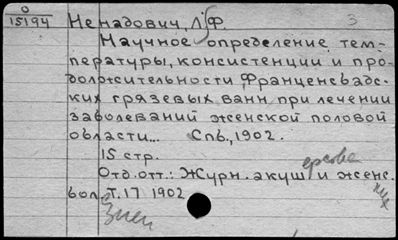 0
15194 Ненадович, Л. Ф. 3
Научное определение тем-
пературы, консистенции и про-
должительности Франценсбадс-
ких грязевых ванн при лечении
заболеваний женской половой
области... Спб., 1902.
15 стр.
Отд. отт.: Журн. акуш. и женс.
бол. Т. 17 1902